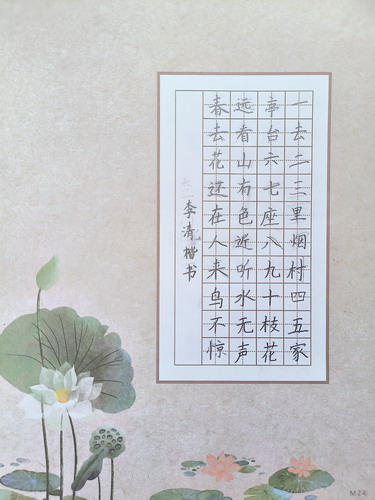 一去二三里烟村四五家
亭台六七座八九十枝花
远看山有色近听水无声
春去花还在人来鸟不惊
李清楷书
M24